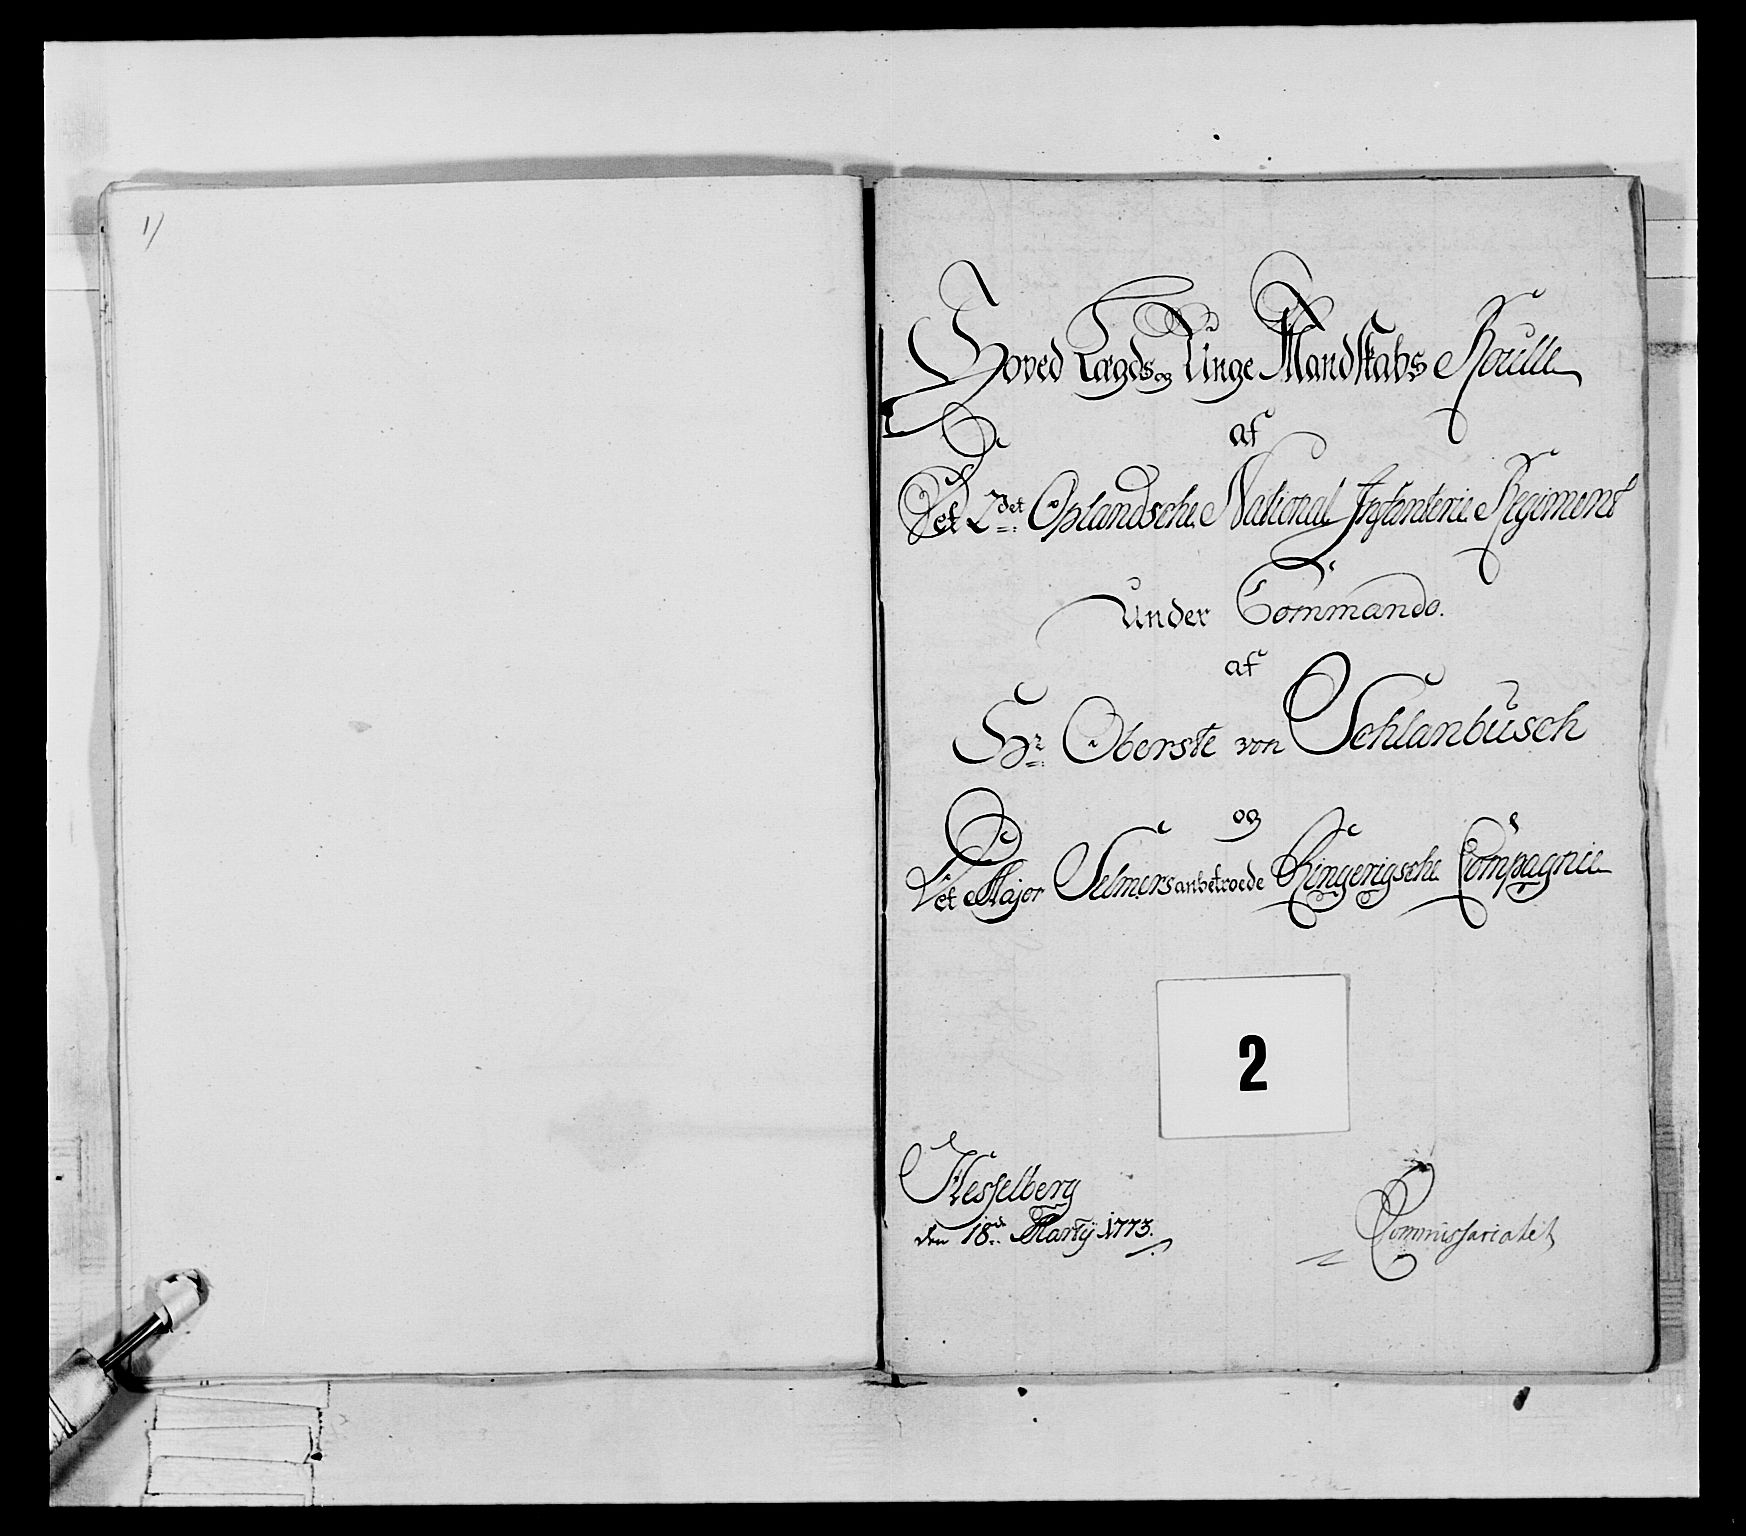 1)
Hoved Lægds og Unge Mandskabs Roulle
af
Det 2det Oplandsche National Infanterie Regiment
under Commando.
af
Hr Oberste von Schlanbusch
og
Det Major Selmers anbetroede Ringerigsche Compagnie
2
Hesselberg
den 18de Marty 1773.
Commissariatet